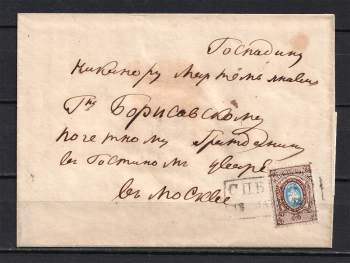 Господину
Никанору Мартем
Гну Борисовскому
почетному Гражданину
въ Гостиномъ дворе
въ Москве
С.П.Б.